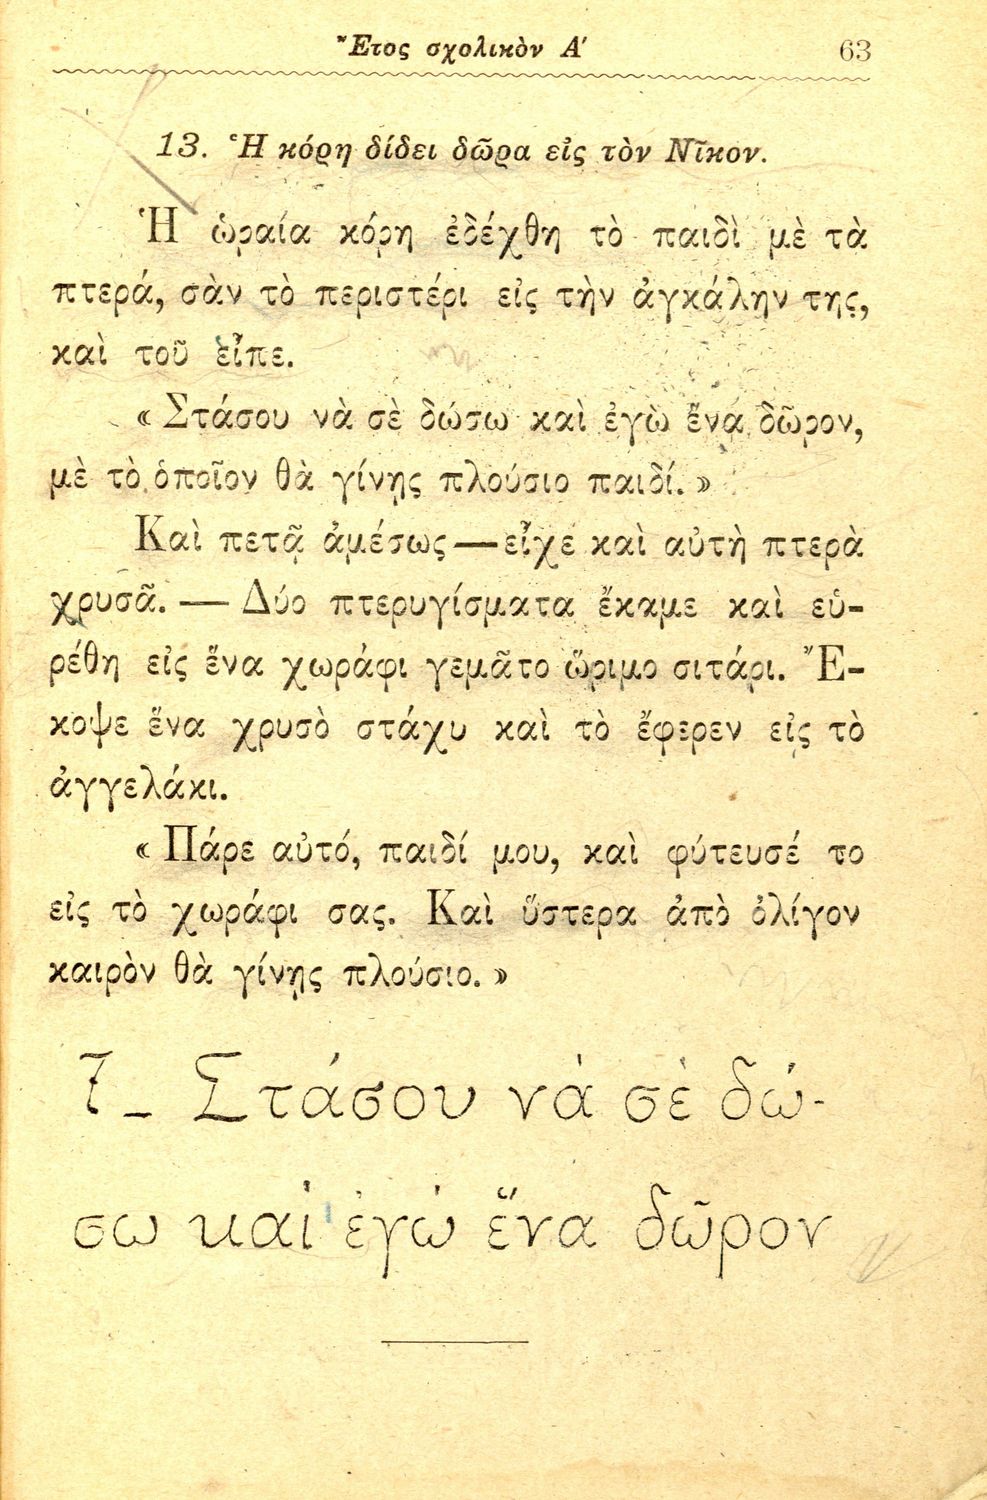 Ἔτος σχολικὸν Α΄ 63
13. Ἡ κόρη δίδει δῶρα εἰς τὸν Νῖκον.
Ἡ ὡραία κόρη ἐδέχθη τὸ παιδὶ μὲ τὰ
πτερά, σὰν τὸ περιστέρι εἰς τὴν ἀγκάλην της,
καὶ τοῦ εἶπε.
« Στάσου νὰ σὲ δώσω καὶ ἐγὼ ἕνα δῶρον,
μὲ τὸ ὁποῖον θὰ γίνῃς πλούσιο παιδί. »
Καὶ πετᾷ ἀμέσως — εἶχε καὶ αὐτὴ πτερὰ
χρυσᾶ. — Δύο πτερυγίσματα ἔκαμε καὶ εὑ-
ρέθη εἰς ἕνα χωράφι γεμᾶτο ὥριμο σιτάρι. Ἔ-
κοψε ἕνα χρυσὸ στάχυ καὶ τὸ ἔφερεν εἰς τὸ
ἀγγελάκι.
« Πάρε αὐτό, παιδί μου, καὶ φύτευσέ το
εἰς τὸ χωράφι σας. Καὶ ὕστερα ἀπὸ ὀλίγον
καιρὸν θὰ γίνῃς πλούσιο. »
7 – Στάσου νὰ σὲ δώ-
σω καὶ ἐγὼ ἕνα δῶρον